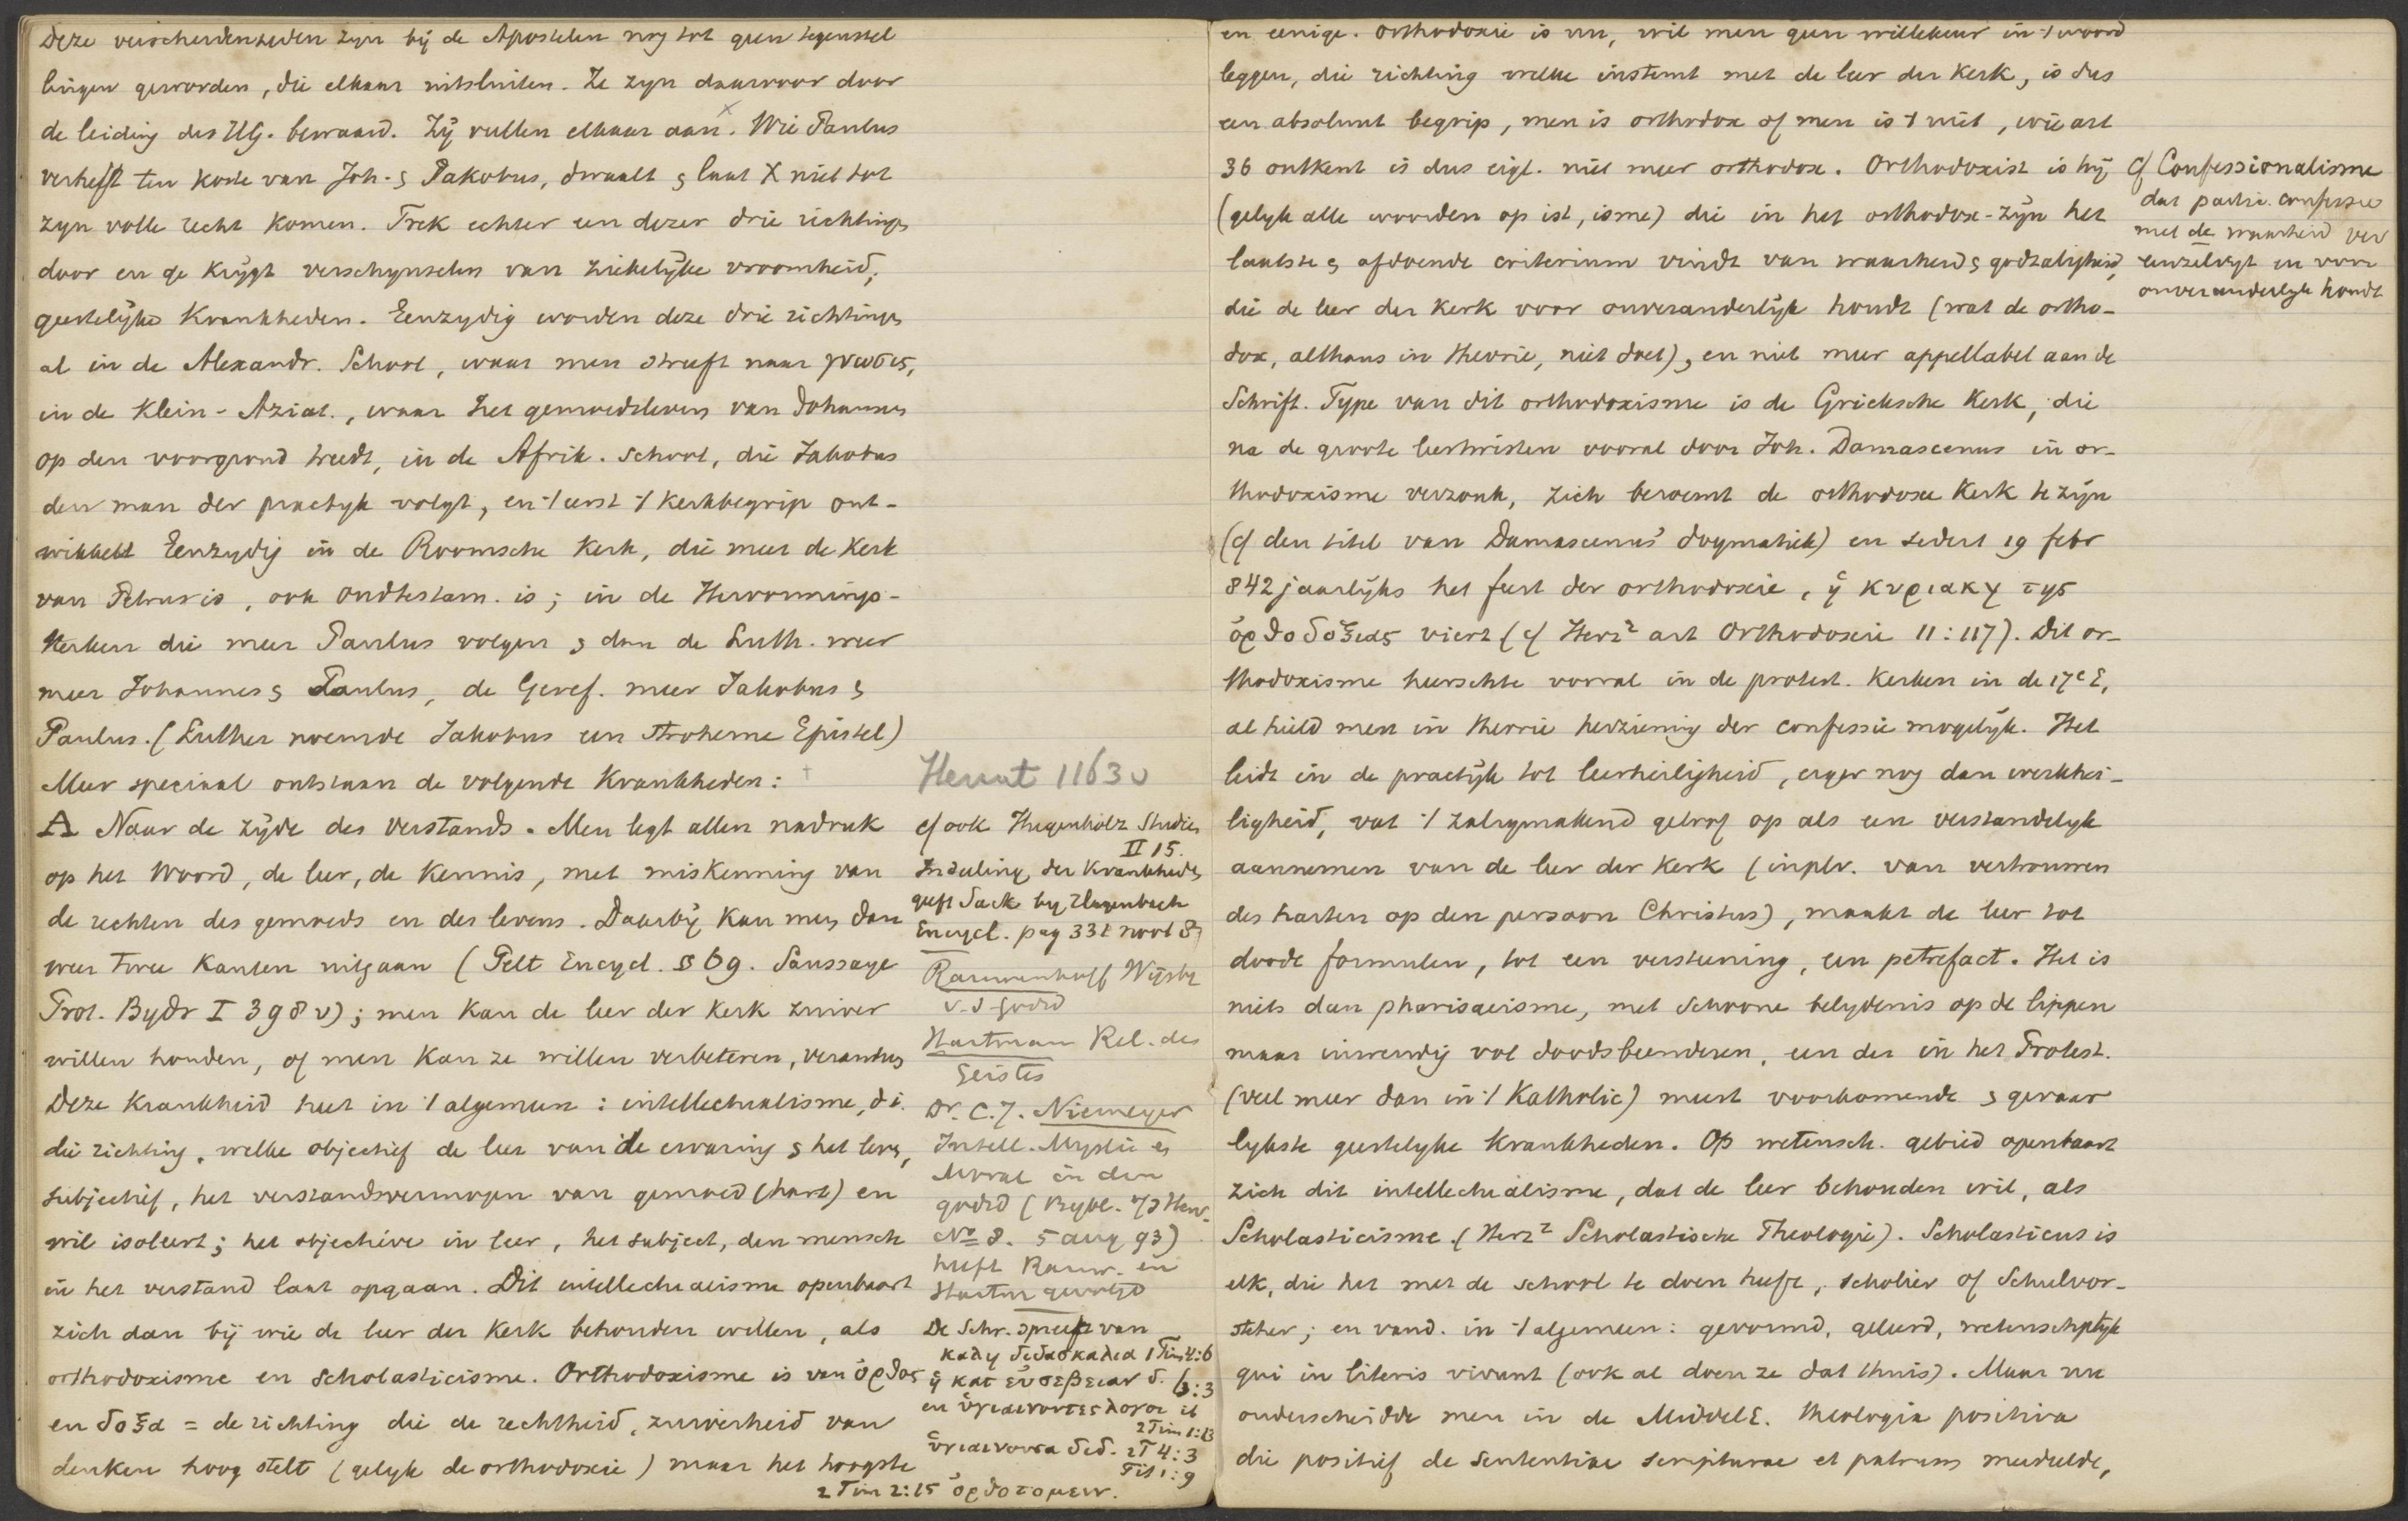 Deze verscheidenheden zyn bij de Apostelen nog tot geen tegenstel
lingen geworden, die elkaar uitsluiten. Ze zyn daarvoor door
de leiding des HG. bewaard. Zij vullen elkaar aan. Wie Paulus
verheft ten koste van Joh. & Jakobus, dwaalt & laat X niet tot
zyn volle recht komen. Trek echter een dezer drie richtingen
door en ge krijgt verschynselen van ziekelijke vroomheid,
geestelijke Krankheden. Eenzydig worden deze drie richtingen
al in de Alexandr. School, waar men streeft naar γνωσις,
in de Klein-Aziat., waar het gemoedsleven van Johannes
op den voorgrond treedt, in de Afrik. School, die Jakobus
den man der practyk volgt, en 't eerst 't Kerkbegrip ont-
wikkelt Eenzydig in de Roomsche Kerk, die meer de Kerk
van Petrus is, ook oudtestam. is; in de Hervormings-
Kerken die meer Paulus volgen & dan de Luth. weer
meer Johannes & Paulus, de Geref. meer Jakobus &
Paulus. (Luther noemde Jakobus een stroherne Epistel)
Meer speciaal ontstaan de volgende Krankheden:
A Naar de zijde des Verstands. Men legt allen nadruk
op het Woord, de leer, de Kennis, met miskenning van
de rechten des gemoeds en des levens. Daarbij kan men dan
weer twee Kanten uitgaan (Pelt Encycl. § 69. Saussaye
Prot. Bydr I 398 v); men kan de leer der kerk zuiver
willen houden, of men kan ze willen verbeteren, veranderen
Deze Krankheid heet in 't algemeen: intellectualisme, d.i.
die richting, welke objectief de leer van de ervaring & het leven,
subjectief, het verstandsvermogen van gemoed (hart) en
wil isoleert; het objectieve in leer, het subject, den mensch
in het verstand laat opgaan. Dit intellectualisme openbaart
zich dan bij wie de leer der Kerk behouden willen, als
orthodoxisme en Scholasticisme. Orthodoxisme is van ὀρθος
en δοξα = de richting die de rechtheid, zuiverheid van
denken hoog stelt (gelyk de orthodoxie) maar het hoogste
Herant 1163 v
cf ook Hugenholz Studien
II 15.
Indeeling der Krankheden
geeft Sack by Hagenbach
Encycl. pag 332 noot 8
Rauwenhoff Wijsbr
v.d. godsd
Hartman Rel. des
Geistes
Dr. C.J. Niemeyer
Intell. Mystie en
Moraal in den
godsd (Bybl. v/d Herv.
No 8. 5 aug 93)
heeft Rauw. en
Hartm gevolgd
De Schr. spreekt van
καλη διδασκαλια 1 Tim 4:6
ἡ κατ εὐσεβειαν δ. 6:3
en ὑγιαινοντες λογοι ib
2 Tim 1:13
ὑγιαινουσα διδ. 2T 4:3
Tit 1:9
2 Tim 2:15 ὀρθοτομειν.
en eenige. Orthodoxie is nu, wil men geen willekeur in 't woord
leggen, die richting welke instemt met de leer der Kerk, is dus
een absoluut begrip, men is orthodox of men is 't niet, wie art
36 ontkent is dus eigl. niet meer orthodox. Orthodoxist is hij
(gelyk alle woorden op ist, isme) die in het orthodox-zijn het
laatste & afdoende criterium vindt van waarheid & godzaligheid,
die de leer der Kerk voor onveranderlijk houdt (wat de ortho-
dox, althans in theorie, niet doet), en niet meer appellabel aan de
Schrift. Type van dit orthodoxisme is de Grieksche Kerk, die
na de groote leertwisten vooral door Joh. Damascenus in or-
thodoxisme verzonk, zich beroemt de orthodoxe Kerk te zijn
(cf den titel van Damascenus' dogmatiek) en sedert 19 febr
842 jaarlijks het feest der orthodoxie, ἡ κυριακη της
ὀρθοδοξιας viert (cf Herz² art Orthodoxie 11:117). Dit or-
thodoxisme heerschte vooral in de protest. Kerken in de 17e E,
al hield men in theorie herziening der confessie mogelijk. Het
leidt in de practijk tot leerheiligheid, erger nog dan werkhei-
ligheid, vat 't zaligmakend geloof op als een verstandelyk
aannemen van de leer der Kerk (inplv. van vertrouwen
des harten op den persoon Christus), maakt de leer tot
doode formulen, tot een versteening, een petrefact. Het is
niets dan pharisaeisme, met schoone belydenis op de lippen
maar inwendig vol doodsbeenderen, een der in het Protest.
(veel meer dan in 't Katholic) meest voorkomende & gevaar
lykste geestelyke Krankheden. Op wetensch. gebied openbaart
zich dit intellectualisme, dat de leer behouden wil, als
Scholasticisme. (Herz² Scholastische Theologie). Scholasticus is
elk, die het met de school te doen heeft, scholier of Schulvor-
steher; en vand. in 't algemeen: gevormd, geleerd, wetenschplyk
qui in literis vivunt (ook al doen ze dat thuis). Maar nu
onderscheidde men in de MiddelE. theologia positiva
die positief de sententiae scripturae et patrum meedeelde,
Cf Confessionalisme
dat partic. confessie
met de waarheid ver
eenzelvigt en voor
onveranderlyk houdt